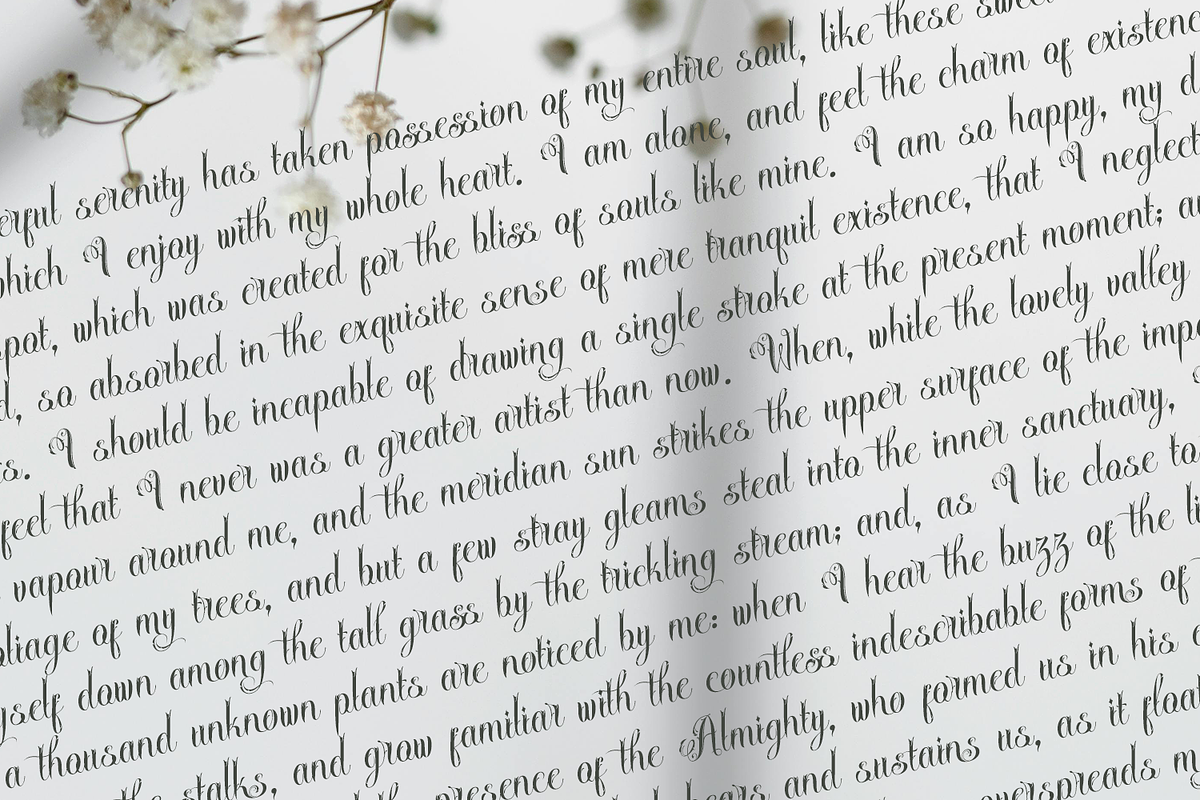 serenity has taken possession of my entire soul, like these
which I enjoy with my whole heart. I am alone, and feel the charm of
which was created for the bliss of souls like mine. I am so happy, my
so absorbed in the exquisite sense of mere tranquil existence, that I neglect
I should be incapable of drawing a single stroke at the present moment;
feel that I never was a greater artist than now. When, while the lovely valley
vapour around me, and the meridian sun strikes the upper surface of the
of my trees, and but a few stray gleams steal into the inner sanctuary,
down among the tall grass by the trickling stream; and, as I lie close to
a thousand unknown plants are noticed by me: when I hear the buzz of the
stalks, and grow familiar with the countless indescribable forms of
presence of the Almighty, who formed us in his
and sustains us, as it
overspreads